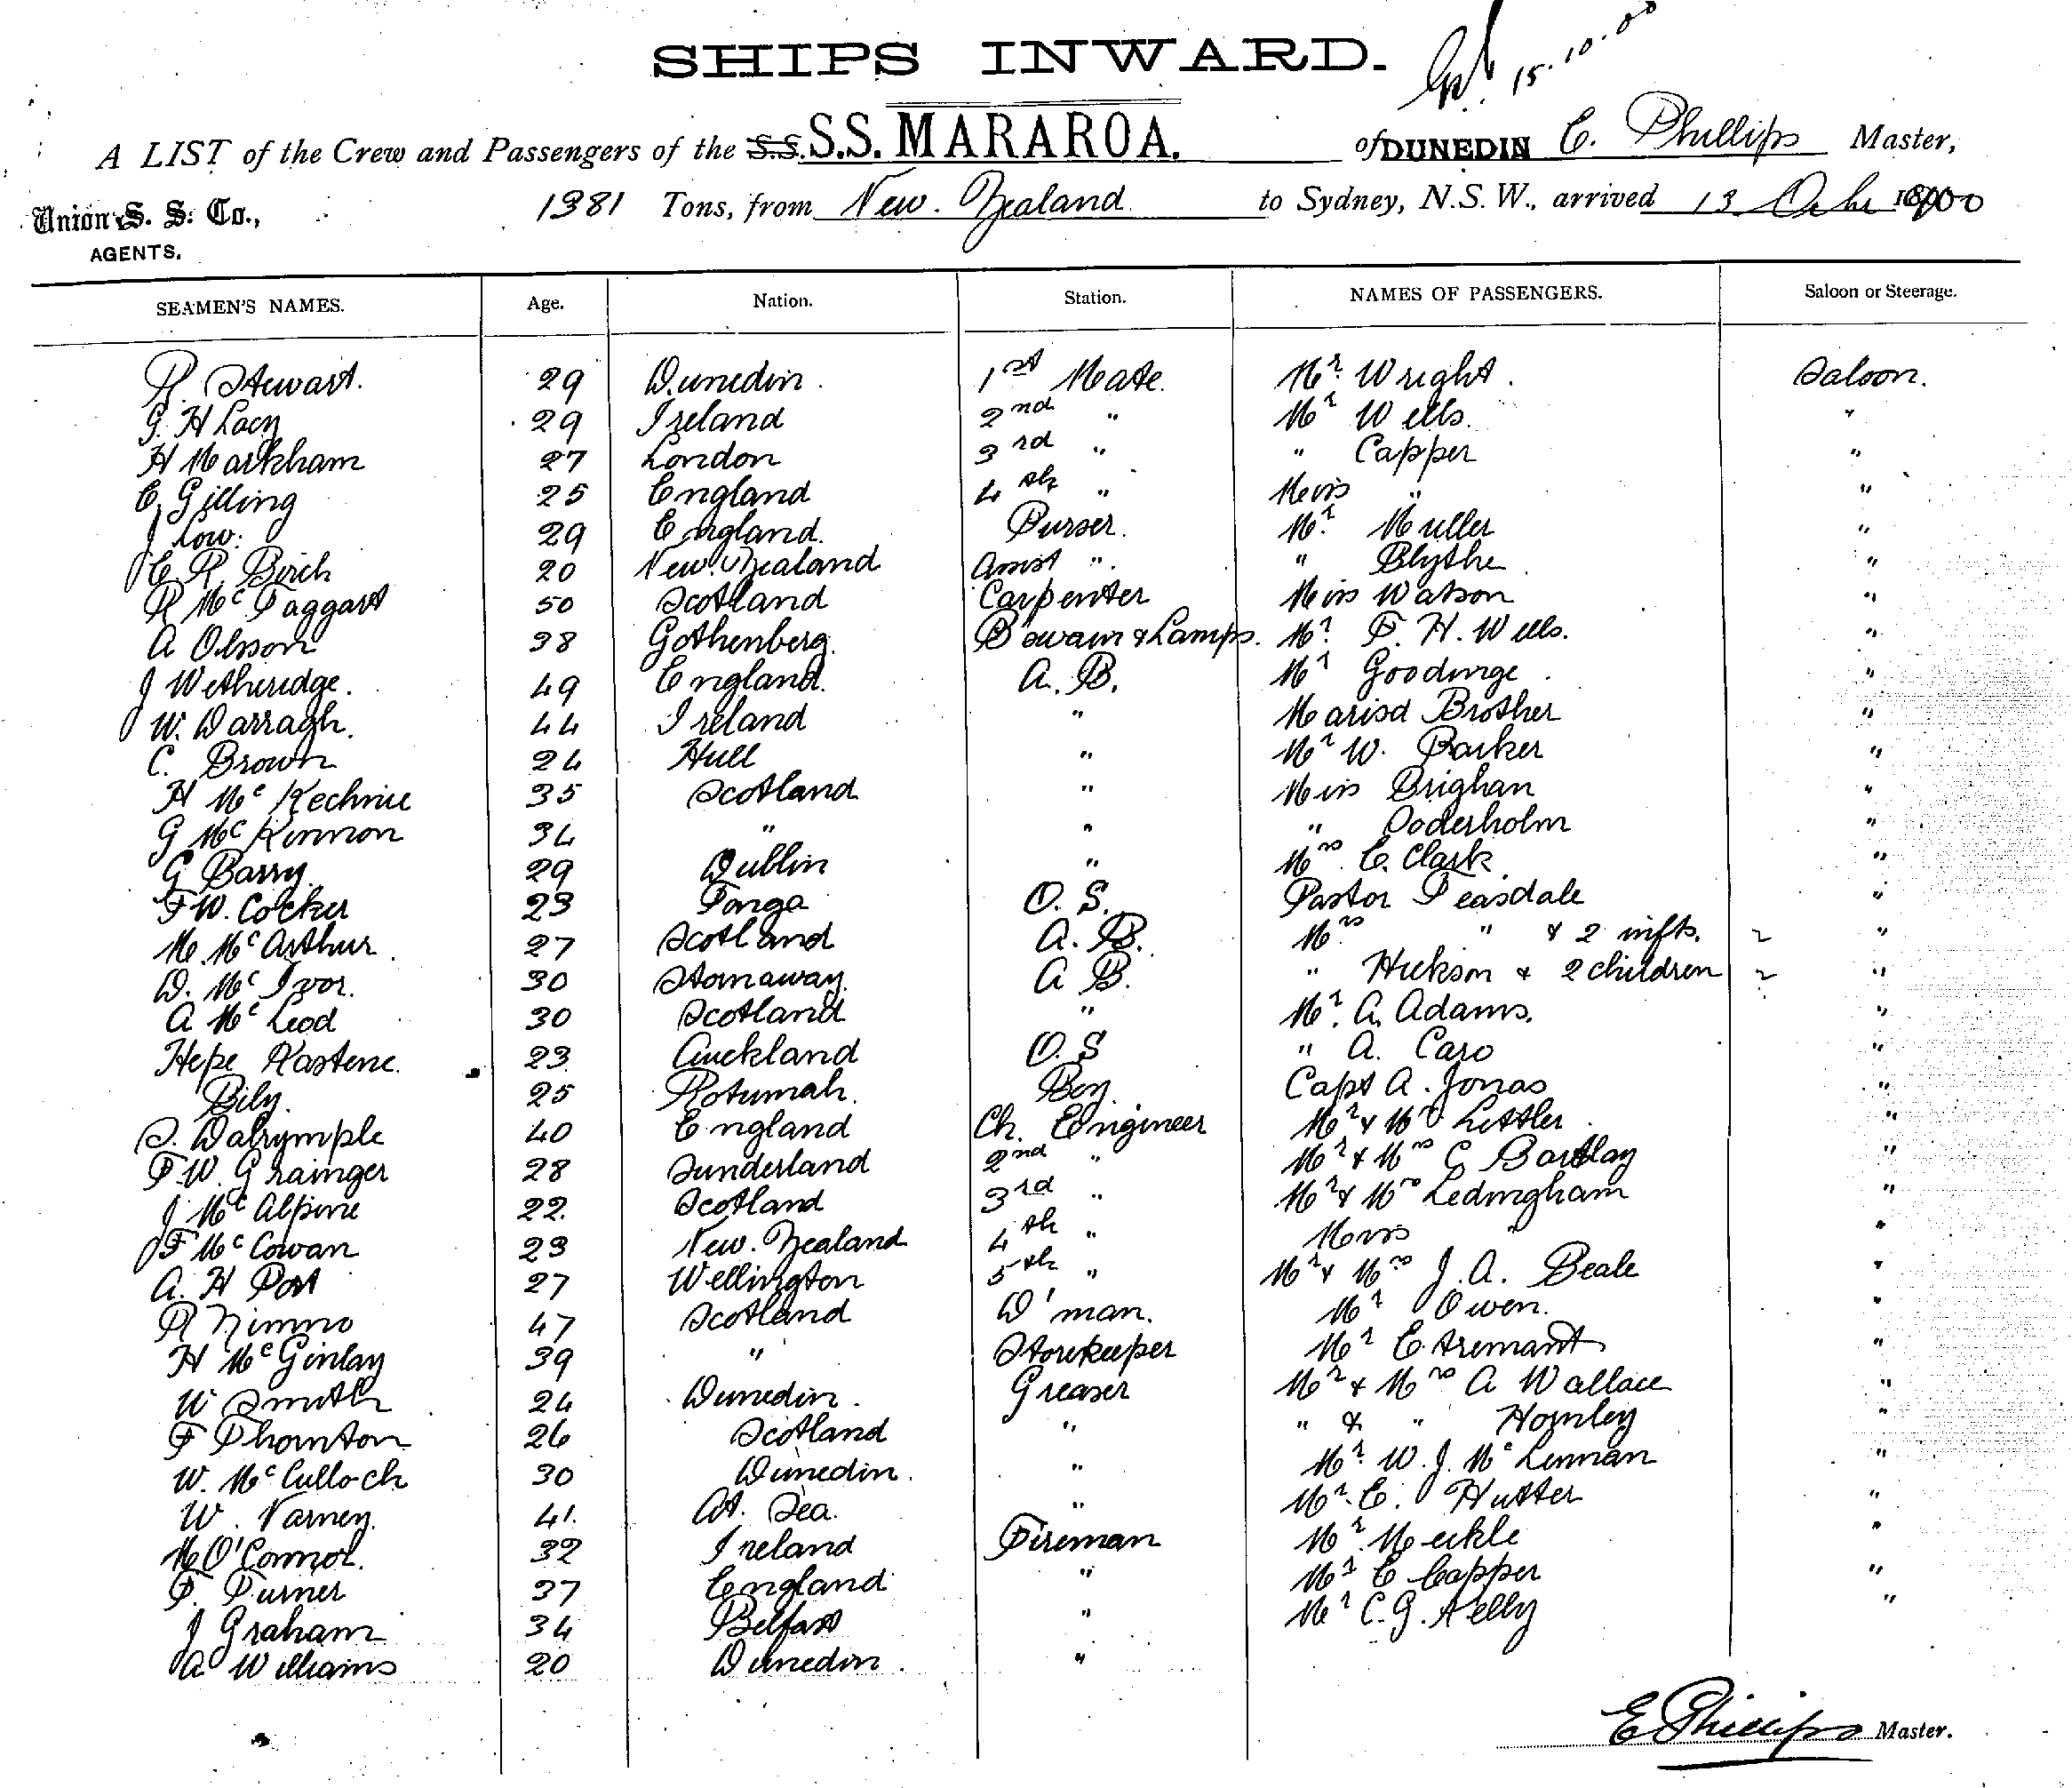 SHIPS INWARD.
15.10.00
A LIST of the Crew and Passengers of the S.S. S.S. MARAROA. of DUNEDIN E. Phillips Master,
Union S. S. Co., 1381 Tons, from New Zealand to Sydney, N.S.W., arrived 13 Octr 1900
AGENTS.
SEAMEN'S NAMES. Age. Nation. Station. NAMES OF PASSENGERS. Saloon or Steerage.
R. Stewart. 29 Dunedin. 1st Mate. Mr. Wright. Saloon.
G. H Lacy 29 Ireland 2nd " Mr Wells. "
H Markham 27 London 3rd " " Capper "
E Gilling 25 England 4th " Miss " "
J Low. 29 England. Purser. Mr. Muller "
E R. Birch 20 New. Zealand Asst ". " Blythe. "
R McTaggart 50 Scotland Carpenter Miss Watson "
A Olsson 38 Gothenberg. B'swain & Lamps. Mr. F. H. Wells. "
J Wetheridge. 49 England. A. B. Mr Gooding "
W. Darragh. 44 Ireland " Marist Brother "
C. Brown 24 Hull " Mr W. Barker "
H McKechnie 35 Scotland " Miss Brighan "
G McKinnon 34 " " " Soderholm "
G Barry. 29 Dublin " Mrs. E. Clark "
F W. Cocker 23 Tonga O. S. Pastor Teasdale "
M. McArthur. 27 Scotland A. B. Mrs " & 2 infts. 2 "
D. McIvor. 30 Stornaway. A B. " Hickson & 2 children 2 "
A McLeod 30 Scotland " Mr. A. Adams. "
Hepe Rastene. 23 Auckland O. S " A. Caro "
Bily. 25 Rotumah. Boy. Capt A. Jonas "
S. Dalrymple 40 England Ch. Engineer Mr & Mrs Littler. "
F. W. Grainger 28 Sunderland 2nd " Mr & Mrs C Bartlay "
J McAlpine 22. Scotland 3rd " Mr & Mrs Ledingham "
F McCowan 23 New. Zealand 4th " Miss " "
A. H Post 27 Wellington 5th " Mr & Mrs J. A. Beale "
R Nimmo 47 Scotland D'man. Mr Owen. "
H McGinlay 39 " Storekeeper Mr E. "
W Smith 24 Dunedin. Greaser Mr & Mrs A Wallace "
F Thornton 26 Scotland " " & " Hornley "
W. McCulloch 30 Dunedin. " Mr. W. J. McLennan "
W. Varney. 41. At. Sea. " Mr. E. Hutter "
M O'Connor. 32 Ireland Fireman Mr. Meikle "
F. Turner 37 England " Mr E Capper "
J Graham 34 Belfast " Mr C. G. Kelly "
A Williams 20 Dunedin. "
E Phillips Master.